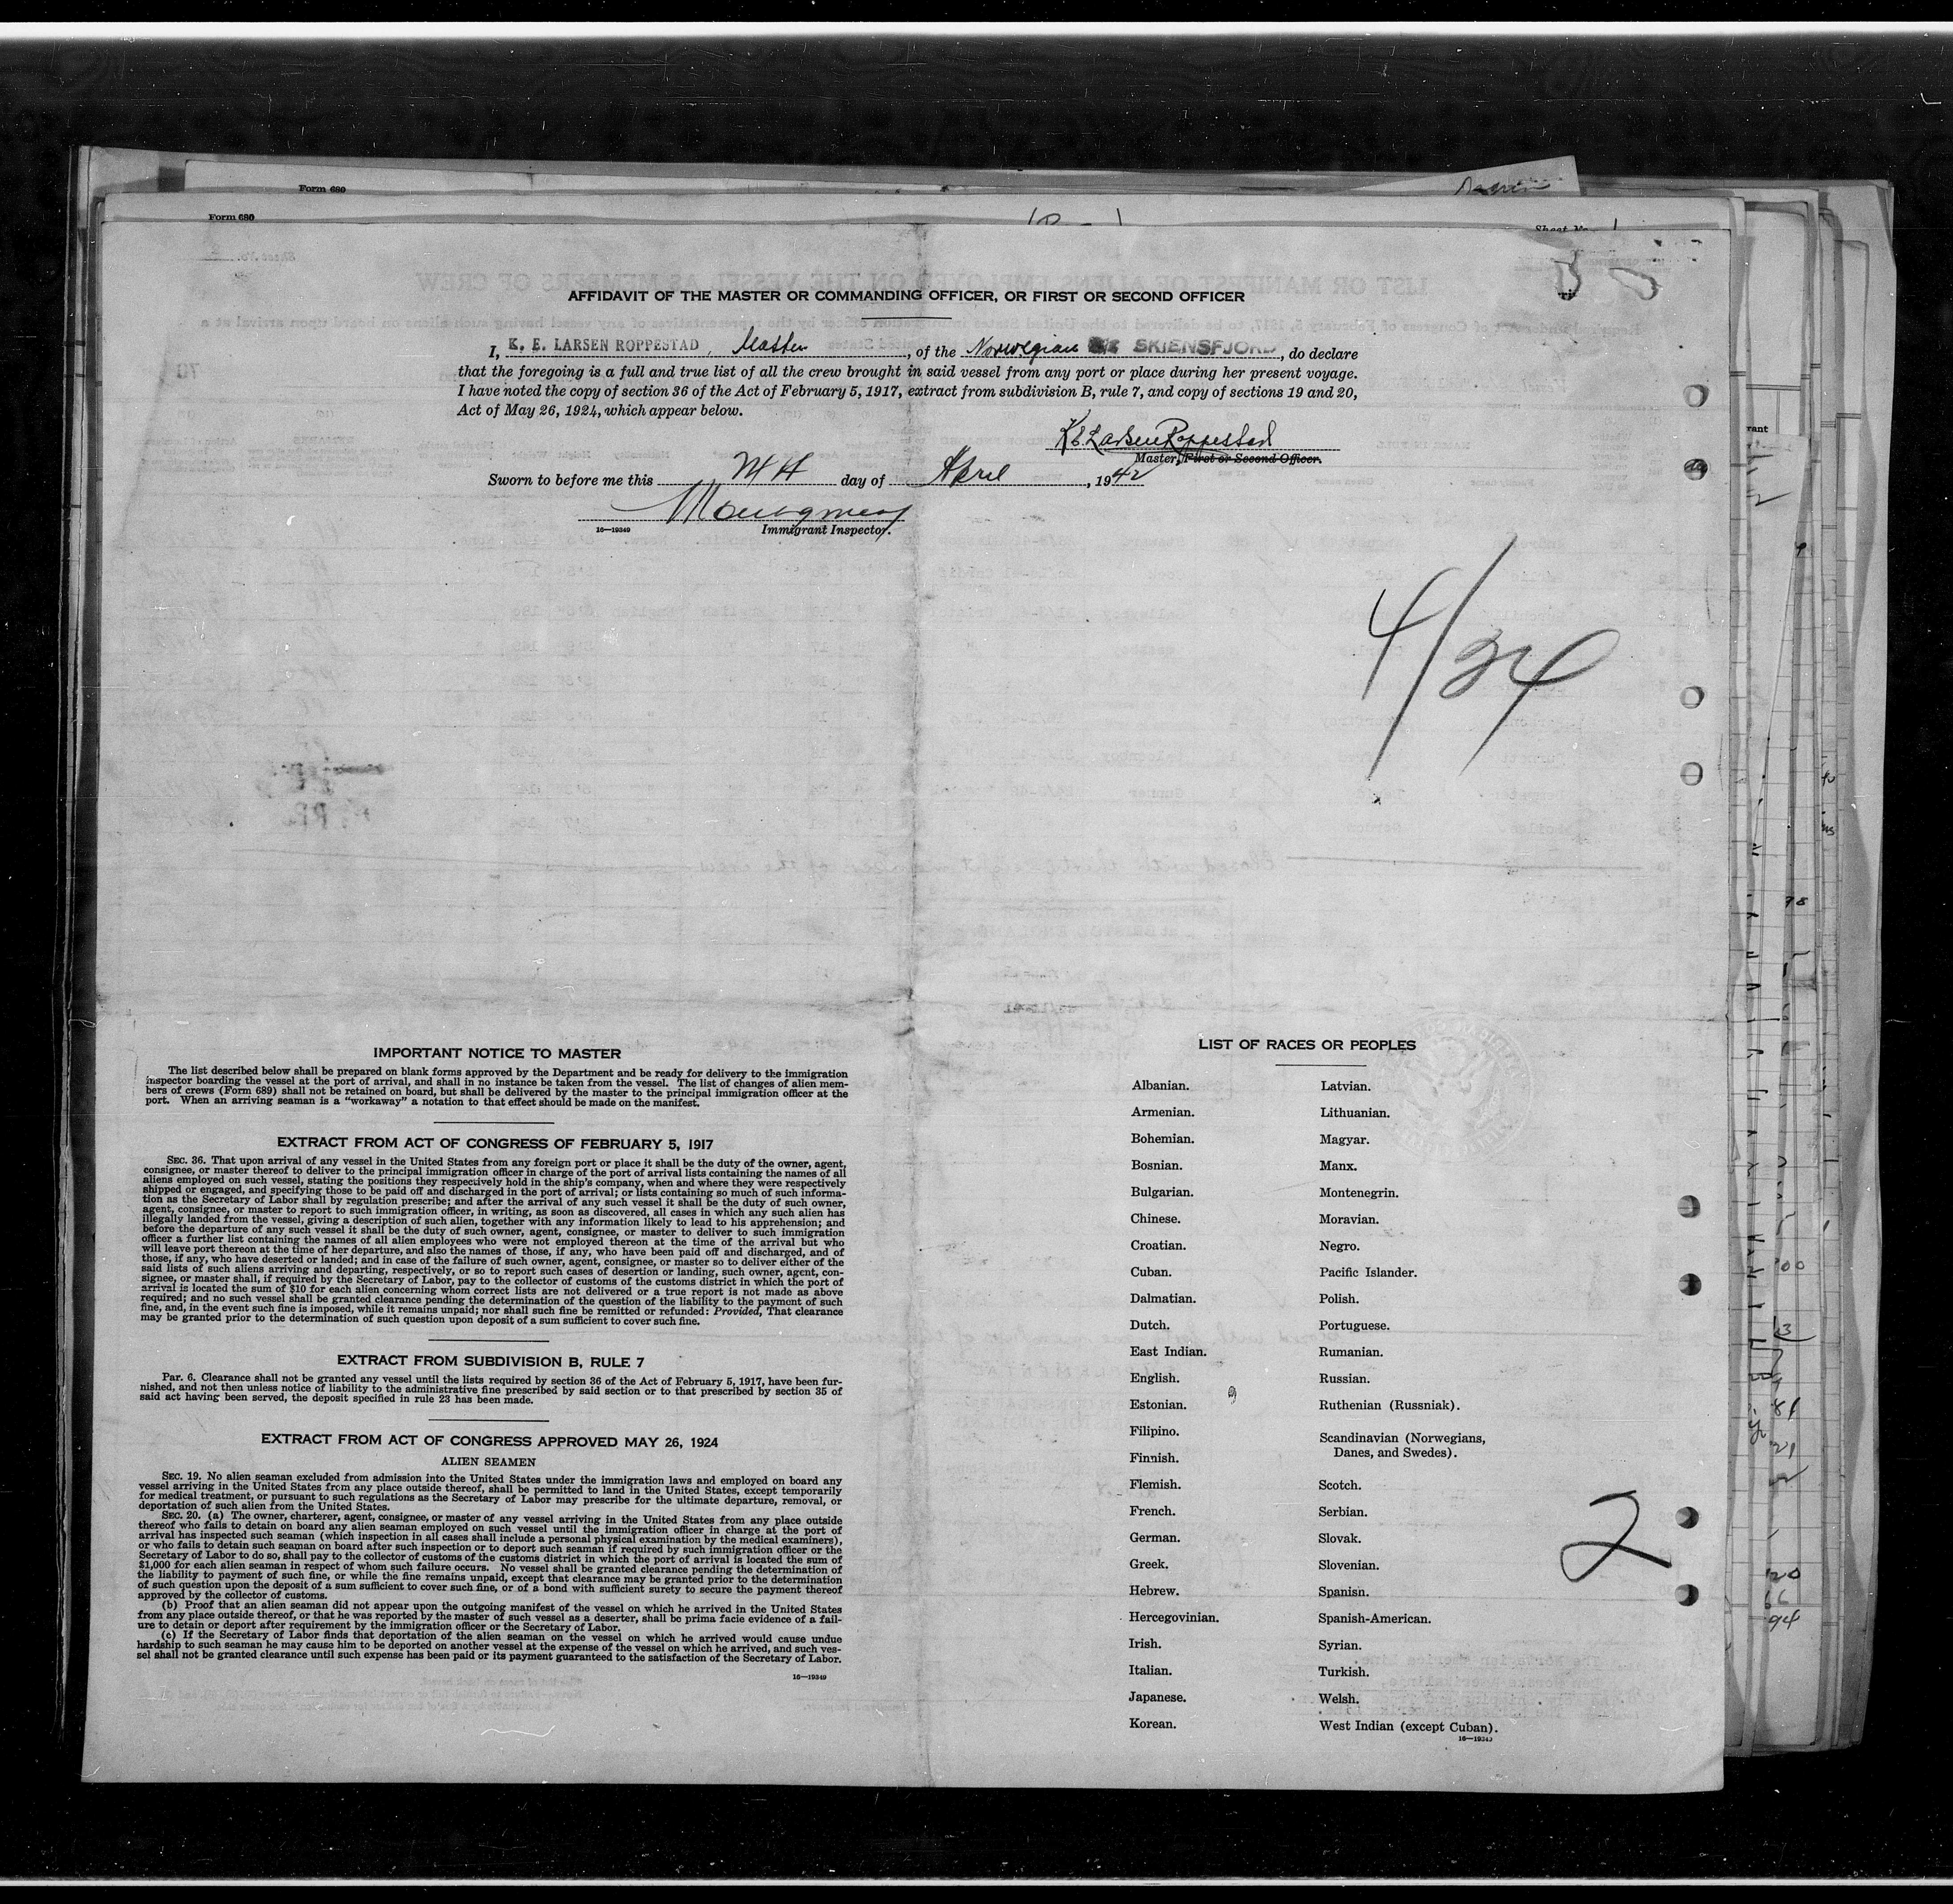 Form 680
Form 680
Sheet No. 1
AFFIDAVIT OF THE MASTER OR COMMANDING OFFICER, OR FIRST OR SECOND OFFICER
I, K. E. LARSEN ROPPESTAD, Master, of the Norwegian SKIENSFJORD, do declare
that the foregoing is a full and true list of all the crew brought in said vessel from any port or place during her present voyage.
I have noted the copy of section 36 of the Act of February 5, 1917, extract from subdivision B, rule 7, and copy of sections 19 and 20,
Act of May 26, 1924, which appear below.
K E Larsen Roppestad
Master, First or Second Officer.
Sworn to before me this day of April, 1942
Montgomery
16—19349 Immigrant Inspector.
4/24
IMPORTANT NOTICE TO MASTER
The list described below shall be prepared on blank forms approved by the Department and be ready for delivery to the immigration
inspector boarding the vessel at the port of arrival, and shall in no instance be taken from the vessel. The list of changes of alien mem-
bers of crews (Form 689) shall not be retained on board, but shall be delivered by the master to the principal immigration officer at the
port. When an arriving seaman is a "workaway" a notation to that effect should be made on the manifest.
EXTRACT FROM ACT OF CONGRESS OF FEBRUARY 5, 1917
SEC. 36. That upon arrival of any vessel in the United States from any foreign port or place it shall be the duty of the owner, agent,
consignee, or master thereof to deliver to the principal immigration officer in charge of the port of arrival lists containing the names of all
aliens employed on such vessel, stating the positions they respectively hold in the ship's company, when and where they were respectively
shipped or engaged, and specifying those to be paid off and discharged in the port of arrival; or lists containing so much of such informa-
tion as the Secretary of Labor shall by regulation prescribe; and after the arrival of any such vessel it shall be the duty of such owner,
agent, consignee, or master to report to such immigration officer, in writing, as soon as discovered, all cases in which any such alien has
illegally landed from the vessel, giving a description of such alien, together with any information likely to lead to his apprehension; and
before the departure of any such vessel it shall be the duty of such owner, agent, consignee, or master to deliver to such immigration
officer a further list containing the names of all alien employees who were not employed thereon at the time of the arrival but who
will leave port thereon at the time of her departure, and also the names of those, if any, who have been paid off and discharged, and of
those, if any, who have deserted or landed; and in case of the failure of such owner, agent, consignee, or master so to deliver either of the
said lists of such aliens arriving and departing, respectively, or so to report such cases of desertion or landing, such owner, agent, con-
signee, or master shall, if required by the Secretary of Labor, pay to the collector of customs of the customs district in which the port of
arrival is located the sum of $10 for each alien concerning whom correct lists are not delivered or a true report is not made as above
required; and no such vessel shall be granted clearance pending the determination of the question of the liability to the payment of such
fine, and, in the event such fine is imposed, while it remains unpaid; nor shall such fine be remitted or refunded: Provided, That clearance
may be granted prior to the determination of such question upon deposit of a sum sufficient to cover such fine.
EXTRACT FROM SUBDIVISION B, RULE 7
Par. 6. Clearance shall not be granted any vessel until the lists required by section 36 of the Act of February 5, 1917, have been fur-
nished, and not then unless notice of liability to the administrative fine prescribed by said section or to that prescribed by section 35 of
said act having been served, the deposit specified in rule 23 has been made.
EXTRACT FROM ACT OF CONGRESS APPROVED MAY 26, 1924
ALIEN SEAMEN
SEC. 19. No alien seaman excluded from admission into the United States under the immigration laws and employed on board any
vessel arriving in the United States from any place outside thereof, shall be permitted to land in the United States, except temporarily
for medical treatment, or pursuant to such regulations as the Secretary of Labor may prescribe for the ultimate departure, removal, or
deportation of such alien from the United States.
SEC. 20. (a) The owner, charterer, agent, consignee, or master of any vessel arriving in the United States from any place outside
thereof who fails to detain on board any alien seaman employed on such vessel until the immigration officer in charge at the port of
arrival has inspected such seaman (which inspection in all cases shall include a personal physical examination by the medical examiners),
or who fails to detain such seaman on board after such inspection or to deport such seaman if required by such immigration officer or the
Secretary of Labor to do so, shall pay to the collector of customs of the customs district in which the port of arrival is located the sum of
$1,000 for each alien seaman in respect of whom such failure occurs. No vessel shall be granted clearance pending the determination of
the liability to payment of such fine, or while the fine remains unpaid, except that clearance may be granted prior to the determination
of such question upon the deposit of a sum sufficient to cover such fine, or of a bond with sufficient surety to secure the payment thereof
approved by the collector of customs.
(b) Proof that an alien seaman did not appear upon the outgoing manifest of the vessel on which he arrived in the United States
from any place outside thereof, or that he was reported by the master of such vessel as a deserter, shall be prima facie evidence of a fail-
ure to detain or deport after requirement by the immigration officer or the Secretary of Labor.
(c) If the Secretary of Labor finds that deportation of the alien seaman on the vessel on which he arrived would cause undue
hardship to such seaman he may cause him to be deported on another vessel at the expense of the vessel on which he arrived, and such ves-
sel shall not be granted clearance until such expense has been paid or its payment guaranteed to the satisfaction of the Secretary of Labor.
16—19349
LIST OF RACES OR PEOPLES
Albanian.
Armenian.
Bohemian.
Bosnian.
Bulgarian.
Chinese.
Croatian.
Cuban.
Dalmatian.
Dutch.
East Indian.
English.
Estonian.
Filipino.
Finnish.
Flemish.
French.
German.
Greek.
Hebrew.
Hercegovinian.
Irish.
Italian.
Japanese.
Korean.
Latvian.
Lithuanian.
Magyar.
Manx.
Montenegrin.
Moravian.
Negro.
Pacific Islander.
Polish.
Portuguese.
Rumanian.
Russian.
Ruthenian (Russniak).
Scandinavian (Norwegians,
Danes, and Swedes).
Scotch.
Serbian.
Slovak.
Slovenian.
Spanish.
Spanish-American.
Syrian.
Turkish.
Welsh.
West Indian (except Cuban).
16—19349
2